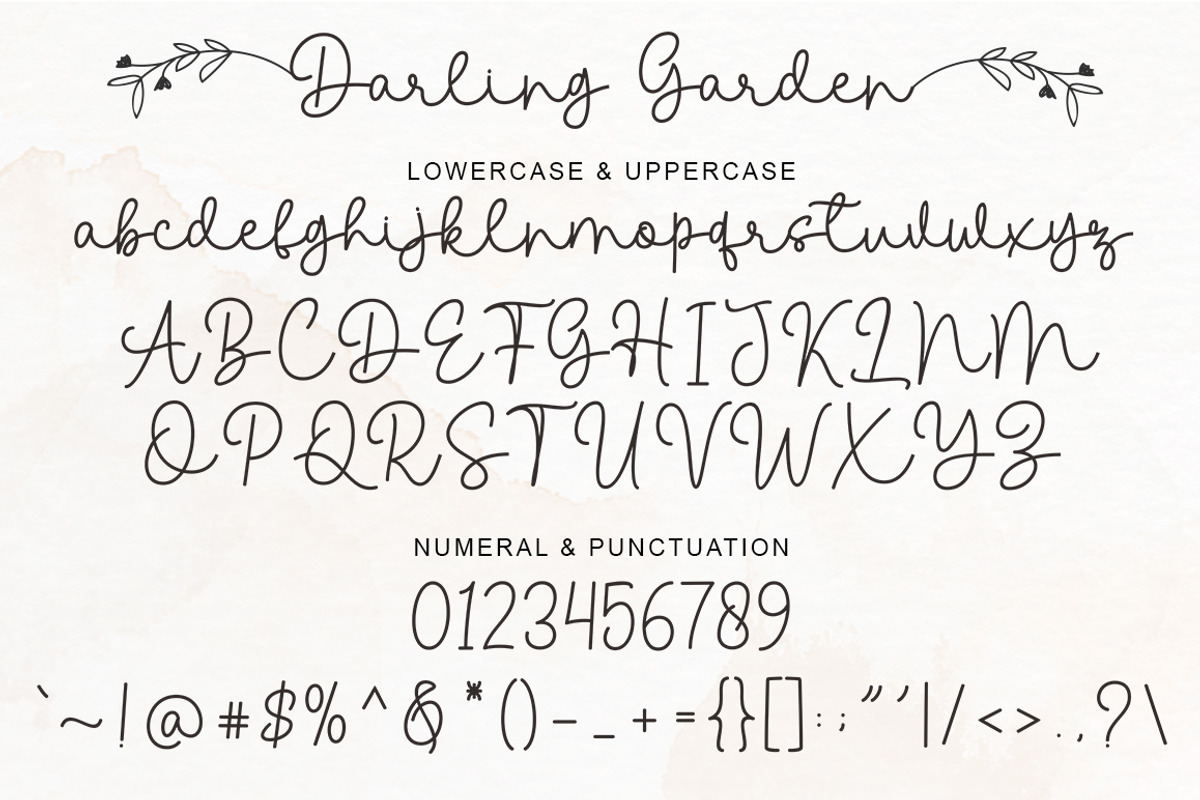 Darling Garden
LOWERCASE & UPPERCASE
abcdefghijklnmopqrstuvwxyz
ABCDEFGHIJKLNM
OPQRSTUVWXYZ
NUMERAL & PUNCTUATION
0123456789
`~!@#$%^&*()-_+={}[]:;”’|/<>.,?\